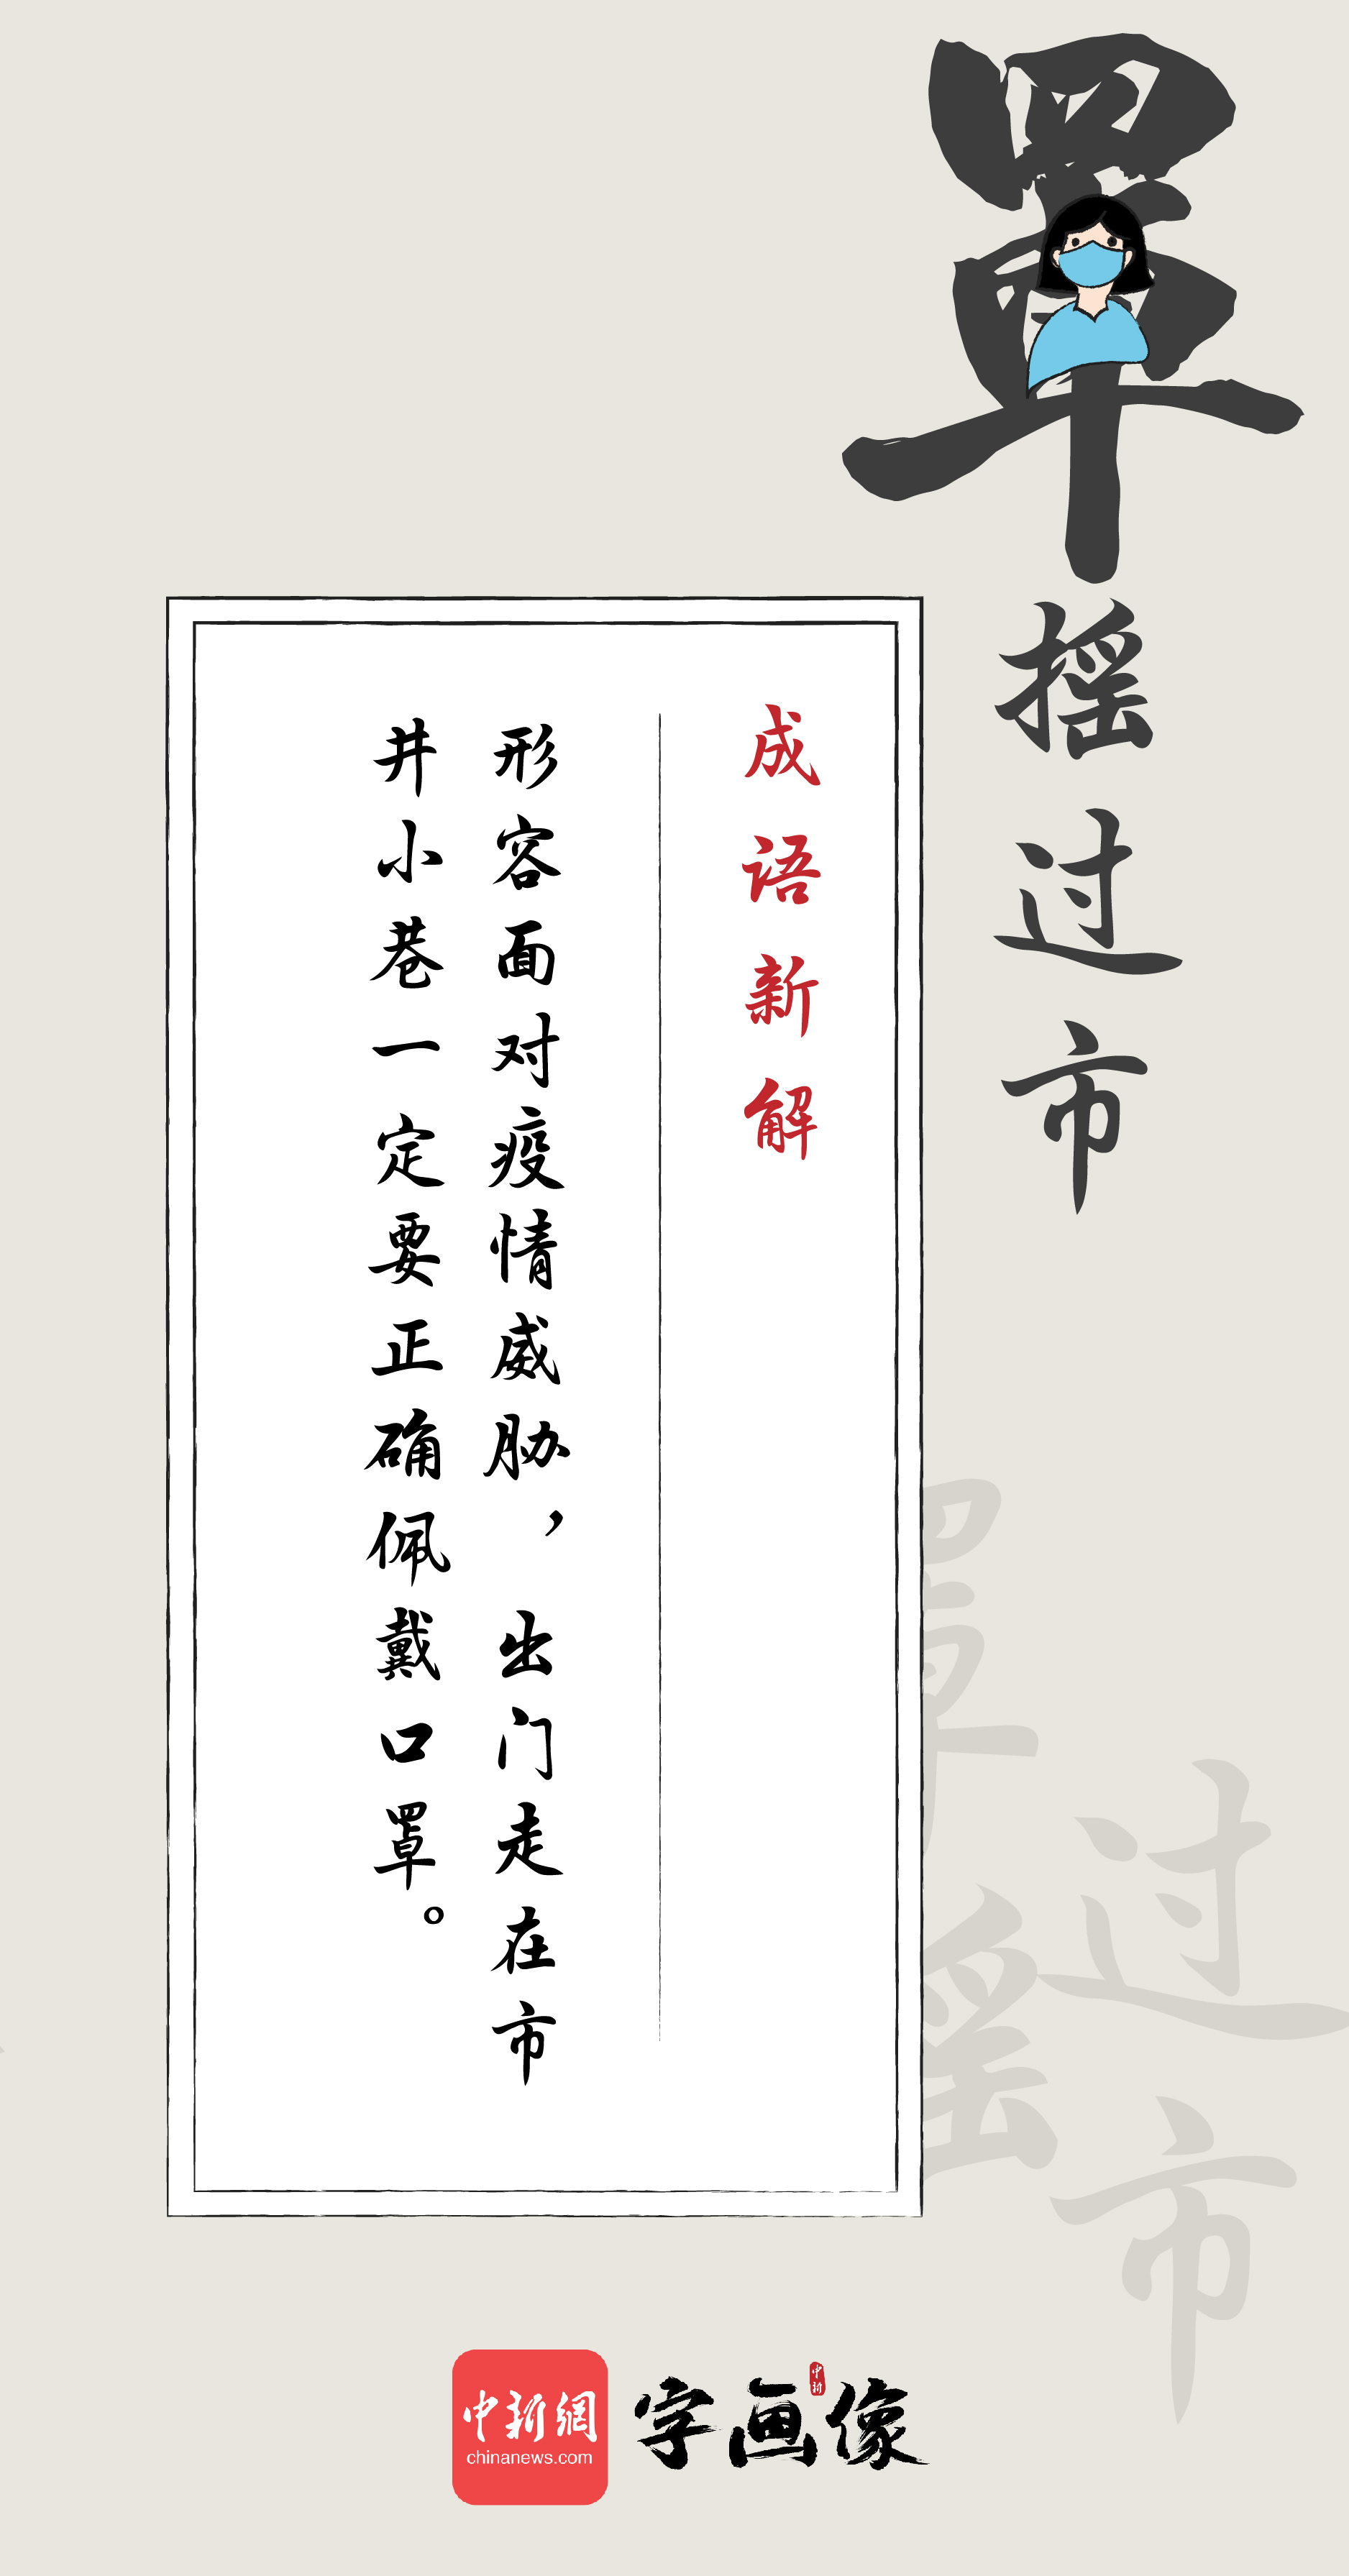 罩摇过市
成语新解
形容面对疫情威胁，出门走在市
井小巷一定要正确佩戴口罩。
罩摇
过市
中新網
chinanews.com
字画像
中新